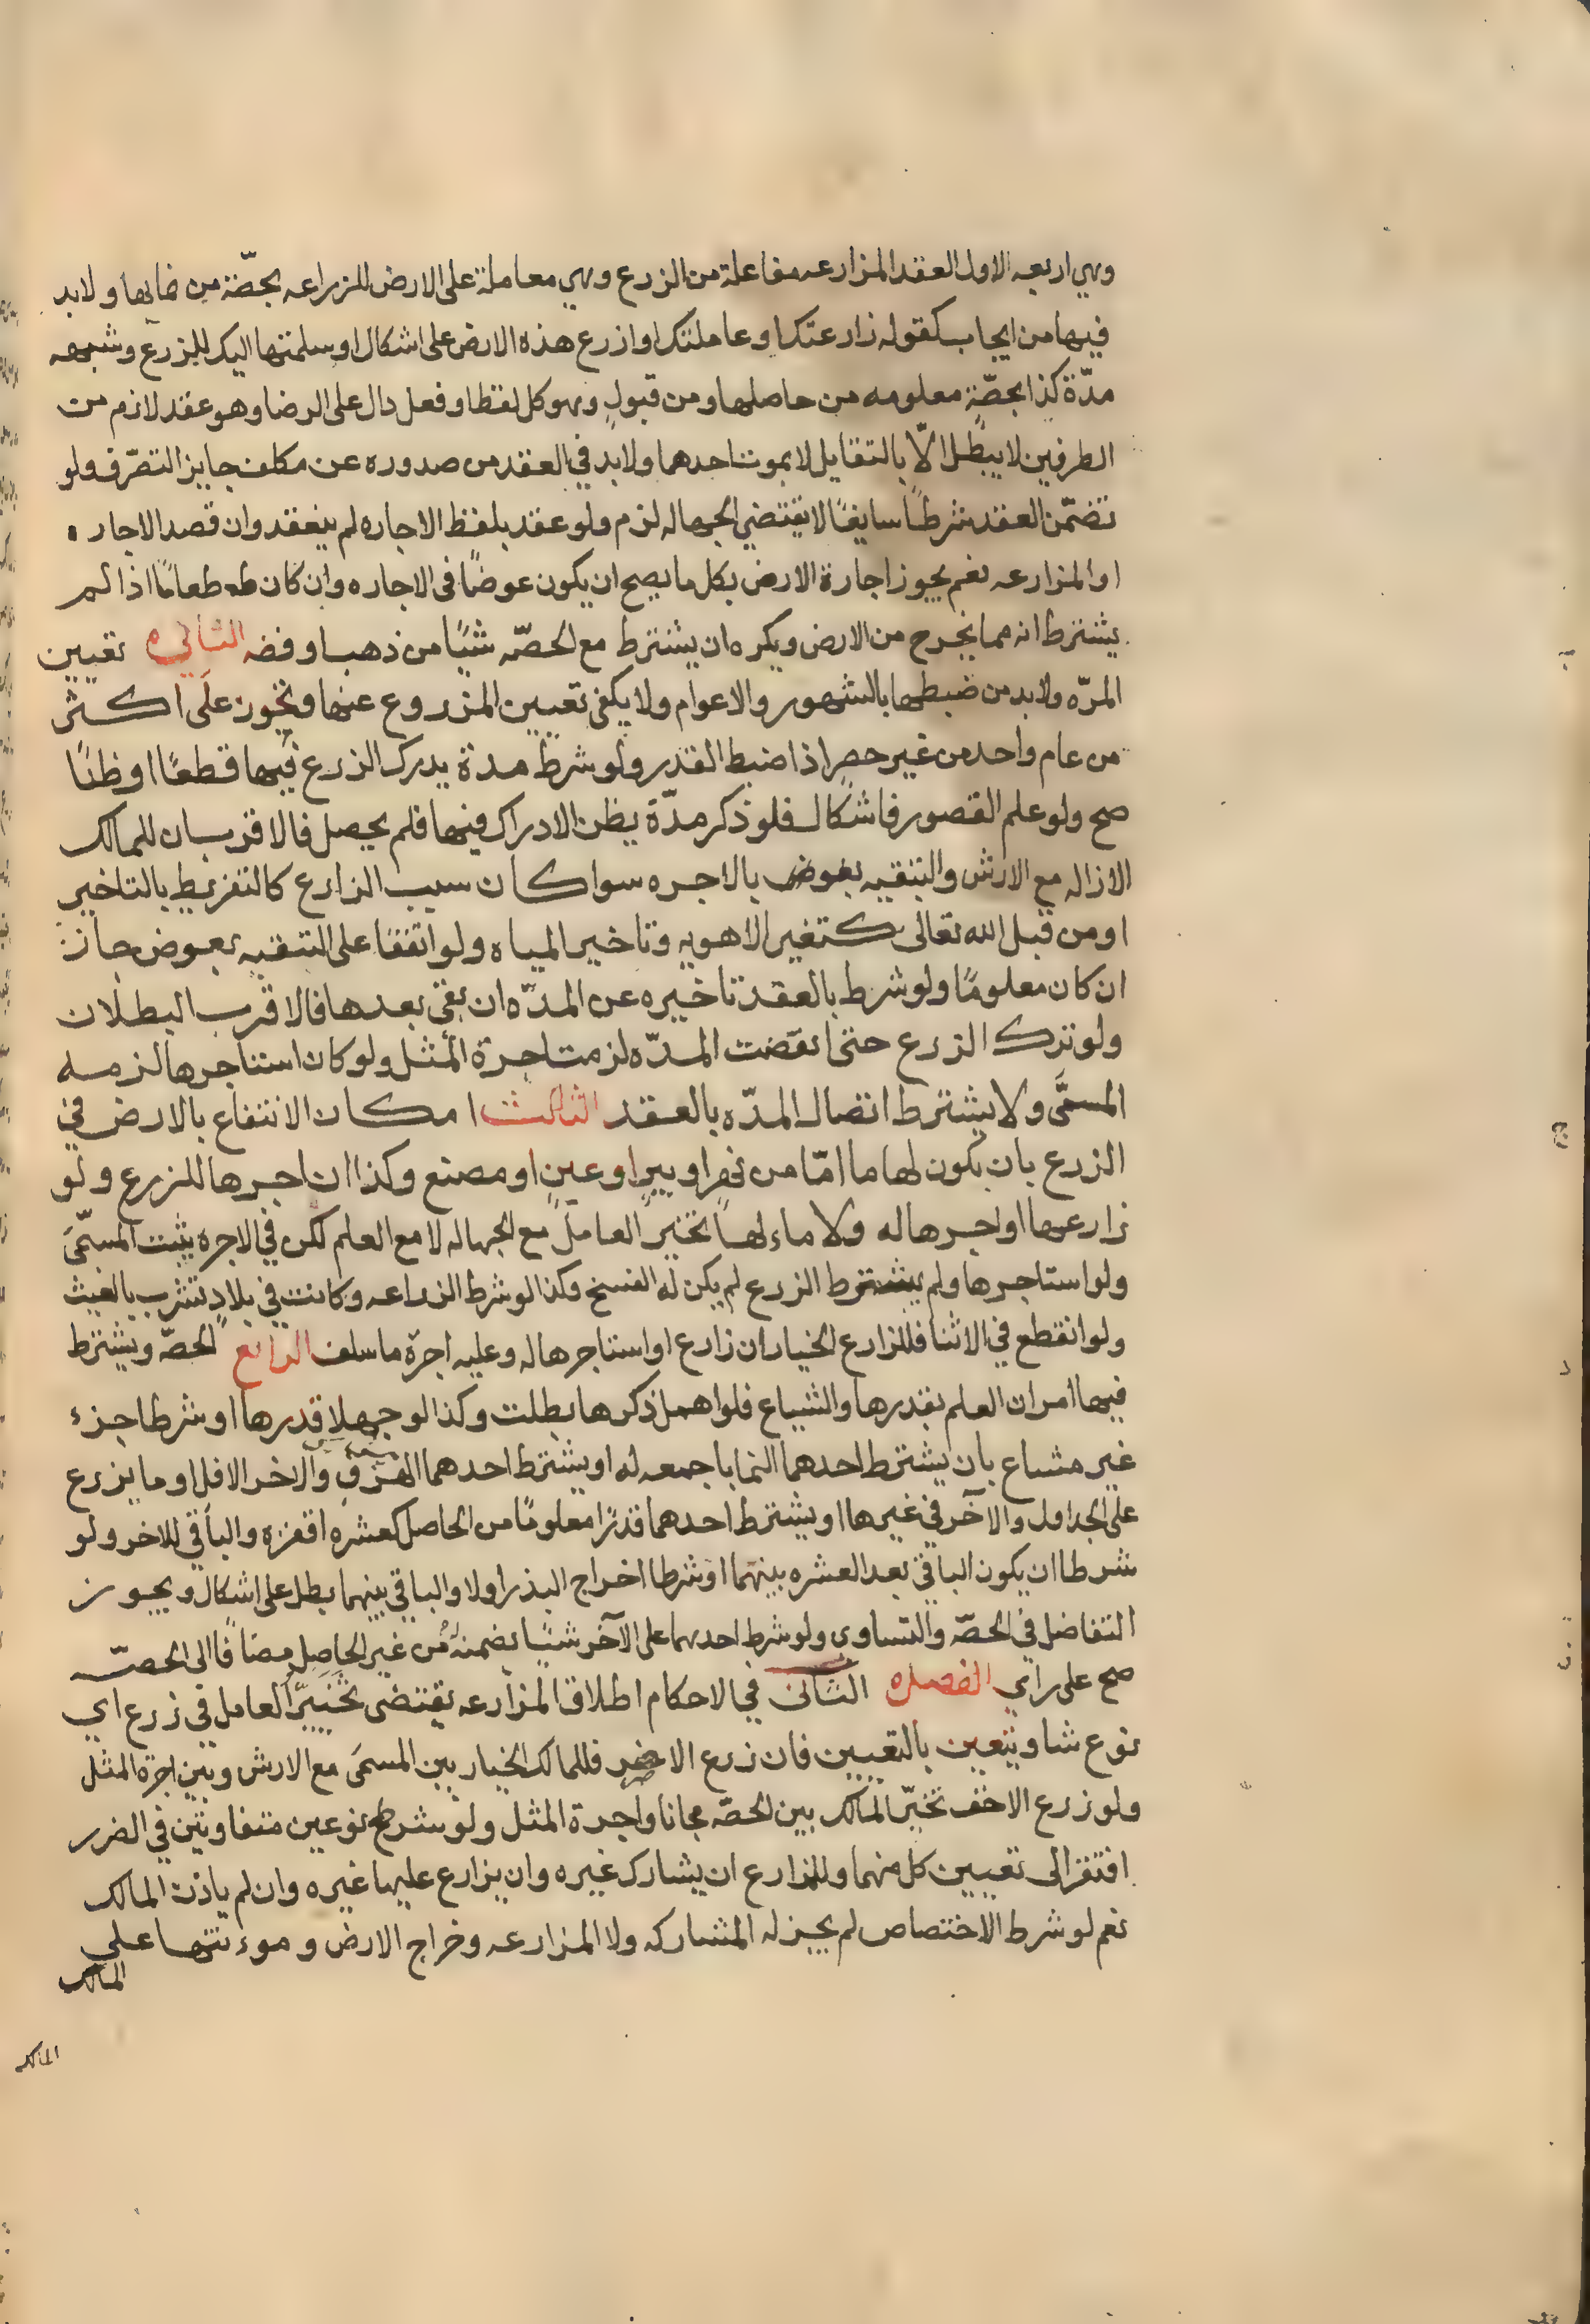 وهي اربعه الاول العقد المزارعه مفاعلة من الزرع وهي معاملة على الارض للزراعه بحصّة من نمائها ولابد
فيها من ايجاب كقوله زارعتك او عاملتك او ازرع هذه الارض على اشكال او سلمتها اليك للزرع وشبهه
مدّة كذا بحصّة معلومه من حاصلها ومن قبولٍ وهو كل لفظ او فعل دال على الرضا وهو عقد لازم من
الطرفين لا يبطل الاّ بالتقايل لا بموت احدهما ولابد في العقد من صدوره عن مكلف جايز التصرّف ولو
تضمّن العقد شرطًا سايغًا لا يقتضي الجهاله لزم ولو عقد بلفظ الاجاره لم ينعقد وان قصد الاجاره
او المزارعه نعم يجوز اجارة الارض بكل ما يصح ان يكون عوضًا في الاجاره وان كان طعامًا اذا لم
يشترط انه مما يخرج من الارض ويكره ان يشترط مع الحصّه شيًا من ذهب او فضه الثاني تعيين
المدّه ولابد من ضبطها بالشهور والاعوام ولا يكفي تعيين المزروع عنها وتجوز على اكثر
من عام واحد من غير حصر اذا ضبط القدر ولو شرط مدة يدرك الزرع فيها قطعًا او ظنًا
صح ولو علم القصور فاشكال فلو ذكر مدّة يظن الادراك فيها فلم يحصل فالاقرب ان للمالك
الازاله مع الارش والتبقيه بعوض بالاجره سوا كان سبب الزارع كالتفريط بالتاخير
او من قبل الله تعالى كتغير الاهويه وتاخير المياه ولو اتفقا على التبقيه بعوض جاز
ان كان معلومًا ولو شرط بالعقد تاخيره عن المدّه ان بقي بعدها فالاقرب البطلان
ولو ترك الزرع حتى انقضت المدّه لزمت اجرة المثل ولو كان استاجرها لزمه
المسمّى ولا يشترط اتصال المدّه بالعقد الثالث امكان الانتفاع بالارض في
الزرع بان يكون لها ما امّا من نهر او بيرٍ او عينٍ او مصنع وكذا ان اجرها للزرع ولو
زارعها او اجرها له ولا ماء لها تخير العامل مع الجهاله لا مع العلم لكن في الاجره يثبت المسمّى
ولو استاجرها ولم يشترط الزرع لم يكن له الفسخ وكذا لو شرط الزراعه وكانت في بلادٍ تشرب بالغيث
ولو انقطع في الاثنا فللزارع الخيار ان زارع او استاجرها له وعليه اجرة ما سلف الرابع الحصّه ويشترط
فيها امران العلم بقدرها والشياع فلو اهمل ذكرها بطلت وكذا لو جهلا قدرها او شرطا جزء
غير مشاع بان يشترط احدهما النما باجمعه له او يشترط احدهما الهرف والاخر الافل او ما يزرع
على الجداول والآخر في غيرها او يشترط احدهما قدرًا معلومًا من الحاصل كعشره اقفزه والباقي للاخر ولو
شرطا ان يكون الباقي بعد العشره بينهما او شرطا اخراج البذر اولا والباقي بينهما بطل على اشكال ويجوز
التفاضل في الحصّه والتساوي ولو شرط احدهما على الآخر شيًا يضمنه من غير الحاصل مضافًا الى الحصّه
صح على راي الفصل الثاني في الاحكام اطلاق المزارعه يقتضى تخيّر العامل في زرع اي
نوع شا ويتعين بالتعيين فان زرع الاضر فللمالك الخيار بين المسمى مع الارش وبين اجرة المثل
ولو زرع الاخف تخيّر المالك بين الحصّه مجانا واجرة المثل ولو شرط نوعين متفاوتين في الضرر
افتقر الى تعيين كل منهما وللزارع ان يشارك غيره وان يزارع عليها غيره وان لم ياذن المالك
نعم لو شرط الاختصاص لم يجز له المشاركه ولا المزارعه وخراج الارض وموءنتها على
المالك
المالك